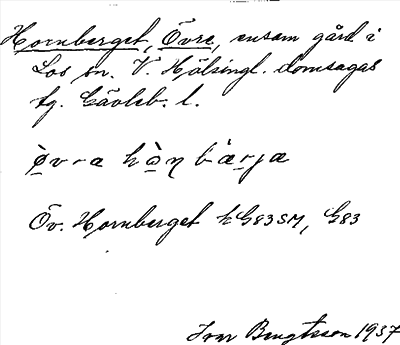 Hornberget, Övre, ensam gård i
Los sn. V. Hälsingl. domsagas
tg. Gävleb. l.
övra hòn bærja
Öv. Hornberget kG83SM, G83
Ivar Bengtsson 1937